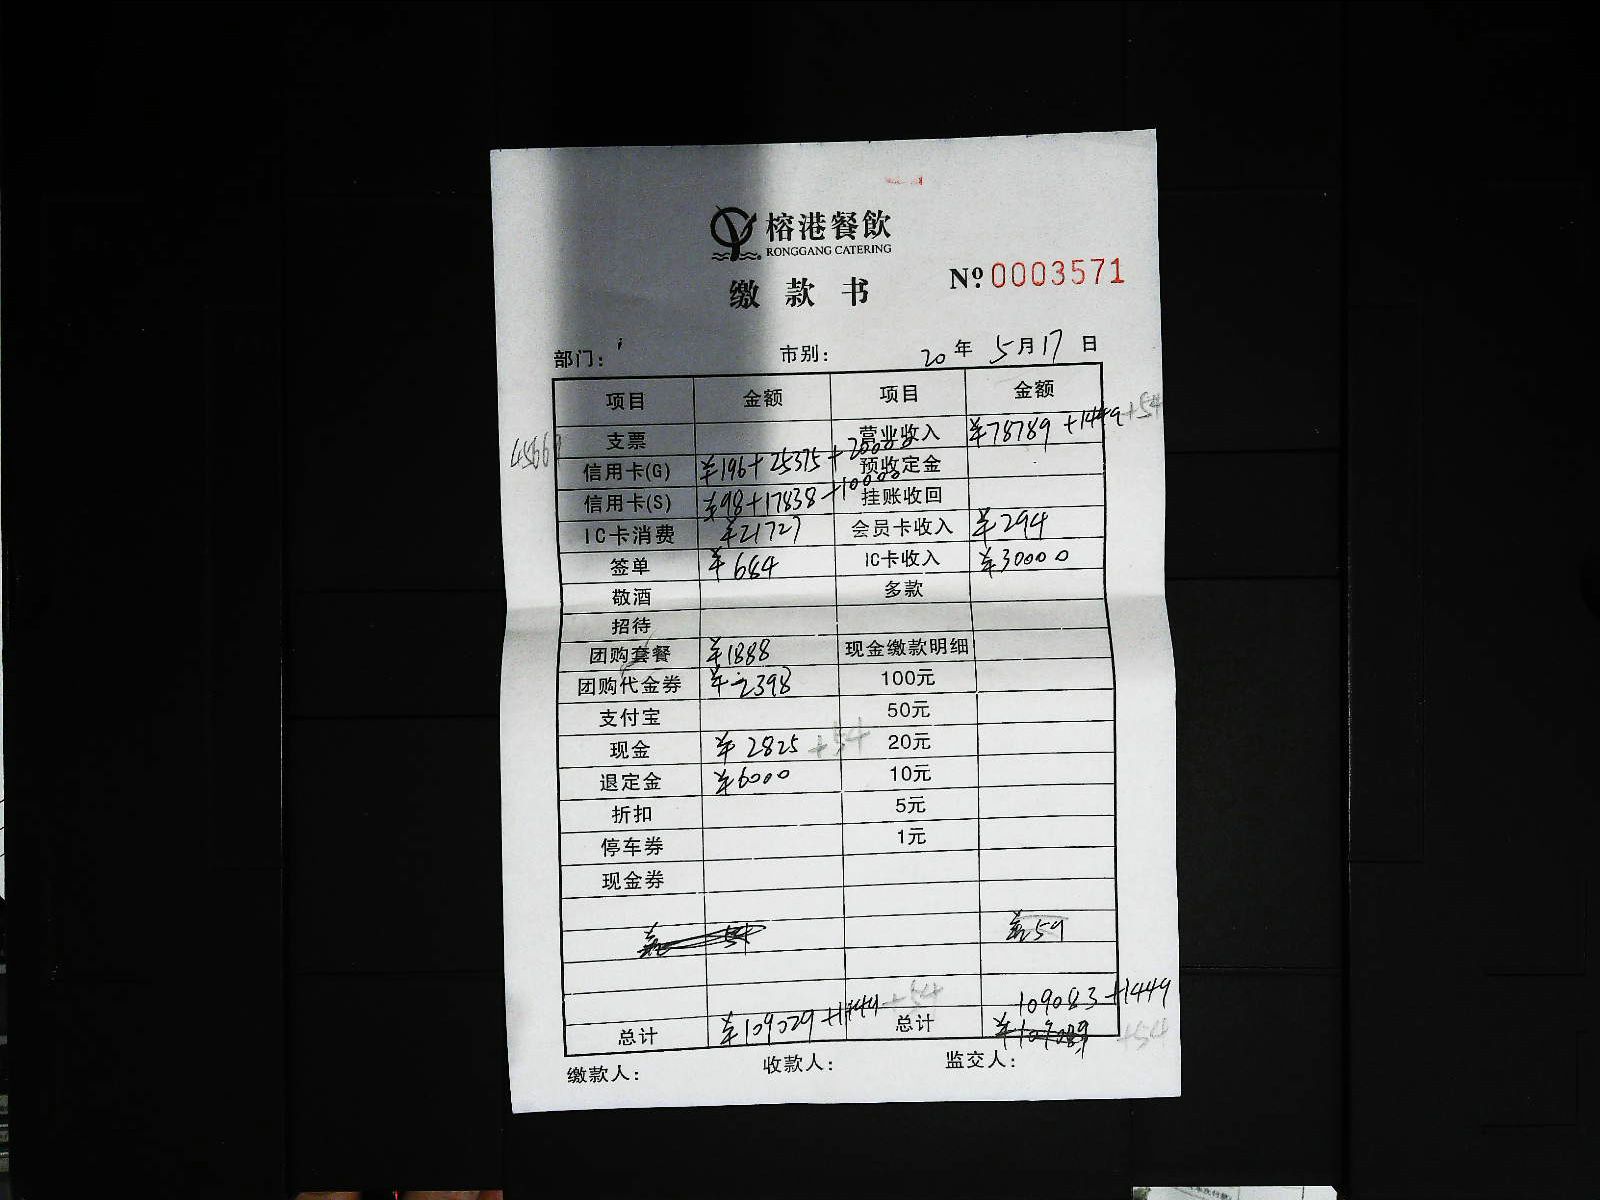 榕港餐飲
RONGGANG CATERING
缴款书
№ 0003571
部门： 市别： 20年 5月17日
项目 金额 项目 金额
支票 营业收入 ¥78789 +1449 +54
信用卡(G) ¥196+25375+20000 预收定金
信用卡(S) ¥98+17838+10000 挂账收回
IC卡消费 ¥21727 会员卡收入 ¥294
签单 ¥684 IC卡收入 ¥30000
敬酒 多款
招待
团购套餐 ¥1888 现金缴款明细
团购代金券 ¥2398 100元
支付宝 50元
现金 ¥2825 +54 20元
退定金 ¥6000 10元
折扣 5元
停车券 1元
现金券
总计 ¥109029 +1449 +54 总计 109083 +1449
+54
缴款人： 收款人： 监交人：